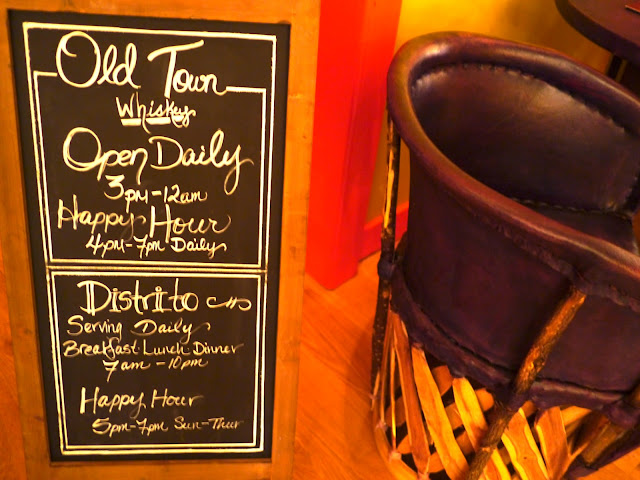 Old Town
Whiskey
Open Daily
3pm-12am
Happy Hour
4pm-7pm Daily
Distrito
Serving Daily
Breakfast · Lunch Dinner
7am - 10pm
Happy Hour
5pm-7pm Sun-Thur